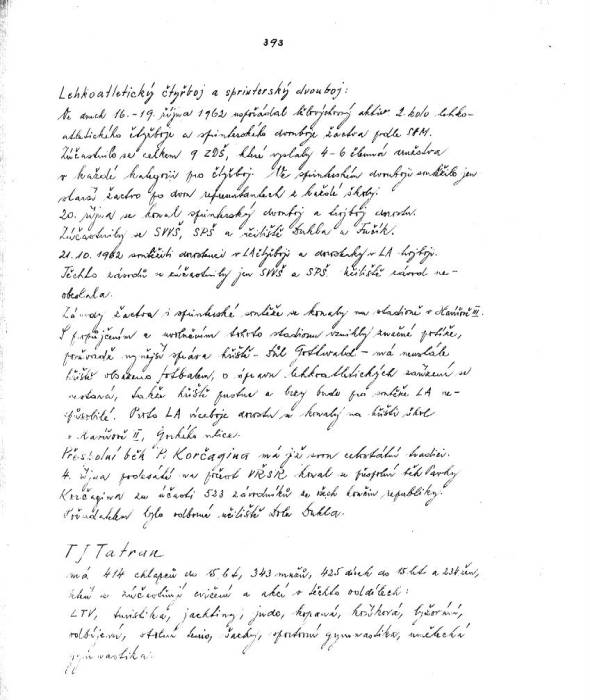 393
Lehkoatletický čtyřboj a sprinterský dvouboj:
Ve dnech 16.-19. října 1962 uspořádal tělovýchovný aktiv 2. kolo lehko-
atletického čtyřboje a sprinterského dvouboje žactva podle SHM.
Zúčastnilo se celkem 9 ZDŠ, které vyslaly 4-6 členná družstva
v každé kategorii pro čtyřboj. Ve sprinterském dvouboji soutěžilo jen
starší žactvo po dvou reprezentantech z každé školy.
20. října se konal sprinterský dvouboj a trojboj dorostu.
Zúčastnily se SVVŠ, SPŠ a učiliště Dukla a Fučík.
21.10.1962 soutěžili dorostenci v LA čtyřboji a dorostenky v LA trojboji.
Těchto závodů se zúčastnily jen SVVŠ a SPŠ. Učiliště závod ne-
obeslala.
Závody žactva i sprinterské soutěže se konaly na stadioně v Havířově III.
S propůjčením a uvolněním tohoto stadionu vznikly značné potíže,
poněvadž nynější správa hřiště - Důl Gottwald - má neustále
hřiště obsazeno fotbalem, o úpravu lehkoatletických zařízení se
nestará, takže hřiště pustne a brzy bude pro soutěže LA ne-
způsobilé. Proto LA víceboje dorostu se konaly na hřišti škol
v Havířově II, Gorkého ulice.
Přespolní běh P. Korčagina má již svou celostátní tradici.
4. října podesáté na počest VŘSR konal se přespolní běh Pavky
Korčagina za účasti 523 závodníků ze všech končin republiky.
Pořadatelem bylo odborné učiliště Dolu Dukla.
TJ Tatran
má 414 chlapců do 15 let, 343 mužů, 425 dívek do 15 let a 234 žen,
kteří se zúčastňují cvičení a akcí v těchto oddílech:
LTV, turistika, jachting, judo, kopaná, košíková, lyžování,
odbíjená, stolní tenis, šachy, sportovní gymnastika, umělecká
gymnastika.